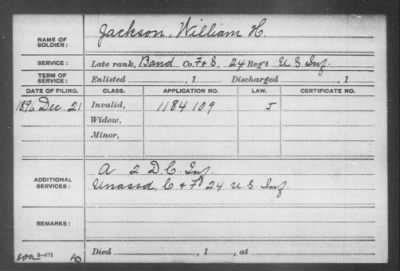 NAME OF SOLDIER: Jackson, William H.
SERVICE: Late rank, Band Co. F & S. 24 Reg't U S Inf.
TERM OF SERVICE: Enlisted , 1 Discharged , 1
DATE OF FILING. CLASS. APPLICATION NO. LAW. CERTIFICATE NO.
1896 Dec. 21 Invalid, 1184109 J
Widow,
Minor,
ADDITIONAL SERVICES: A 2 D.C. Inf.
Unassd, C & F 24 U.S. Inf.
REMARKS:
Died , 1 , at
3-471